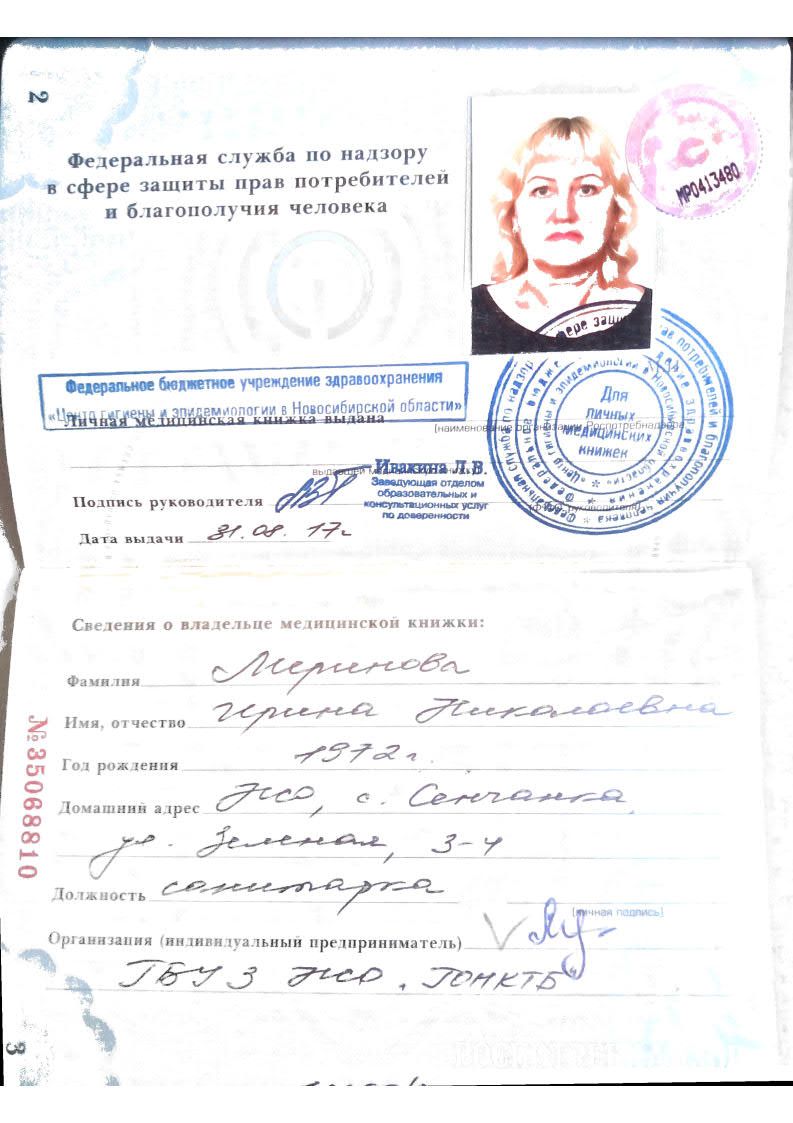 2
Федеральная служба по надзору
в сфере защиты прав потребителей
и благополучия человека
МР0413480
Федеральное бюджетное учреждение здравоохранения
«Центр гигиены и эпидемиологии в Новосибирской области»
Личная медицинская книжка выдана
(наименование организации Роспотребнадзора,
Для
личных
медицинских
книжек
Ивакина Л.В.
Заведующая отделом
образовательных и
консультационных услуг
по доверенности
Подпись руководителя
Дата выдачи 31.08.17г
Сведения о владельце медицинской книжки:
Фамилия Меринова
Имя, отчество Ирина Николаевна
Год рождения 1972г.
Домашний адрес НСО, с. Сенчанка,
ул. Зеленая, 3-4
Должность санитарка
(личная подпись)
Организация (индивидуальный предприниматель)
ГБУЗ НСО "ГОНКТБ"
№35068810
3